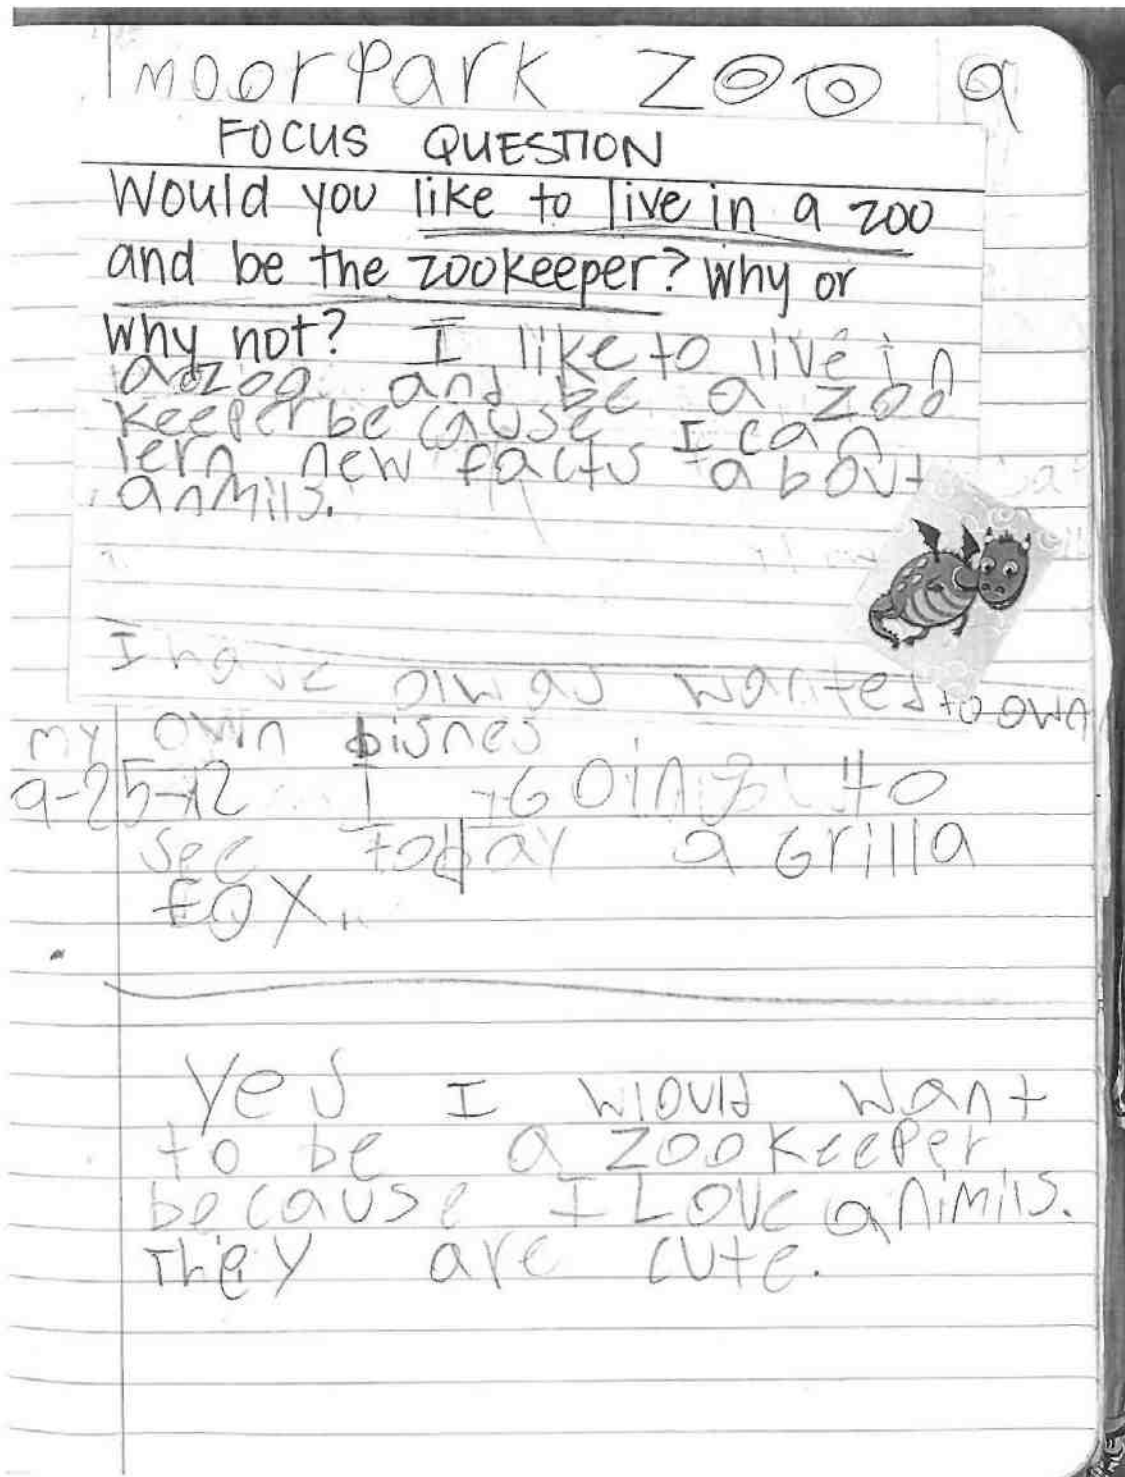 moorPark ZOO 9
FOCUS QUESTION
Would you like to live in a zoo
and be the zookeeper? Why or
why not? I like to live in
a zoo and be a zoo
keeper because I can
lern new facts about
anmils.
I have olwas wanted to own
my own bisnes
9-25-12 I Going to
see today a Grilla
fox.
Yes I would want
to be a zookeeper
because I Love animils.
They are cute.